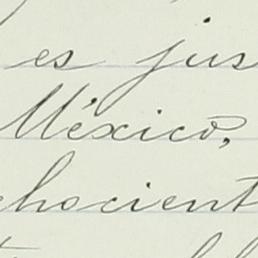 es jus
México,
chocient